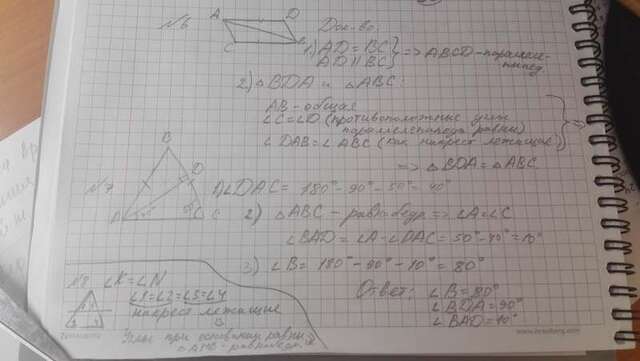 №6
A D
C B
Док-во:
1) AD = BC
AD || BC
=> ABCD - параллелепипед
2) △BDA и △ABC:
AB - общая
∠C = ∠D (противоположные углы
параллелепипеда равны)
∠DAB = ∠ABC (как накрест лежащие)
=> △BDA = △ABC
№7
B
D
A C
1) ∠DAC = 180° - 90° - 50° = 40°
2) △ABC - равнобедр => ∠A = ∠C
∠BAD = ∠A - ∠DAC = 50° - 40° = 10°
3) ∠B = 180° - 90° - 10° = 80°
Ответ: ∠B = 80°
∠BDA = 90°
∠BAD = 10°
№8 ∠K = ∠N
∠1 = ∠2 = ∠3 = ∠4
накрест лежащие
Углы при основании равны